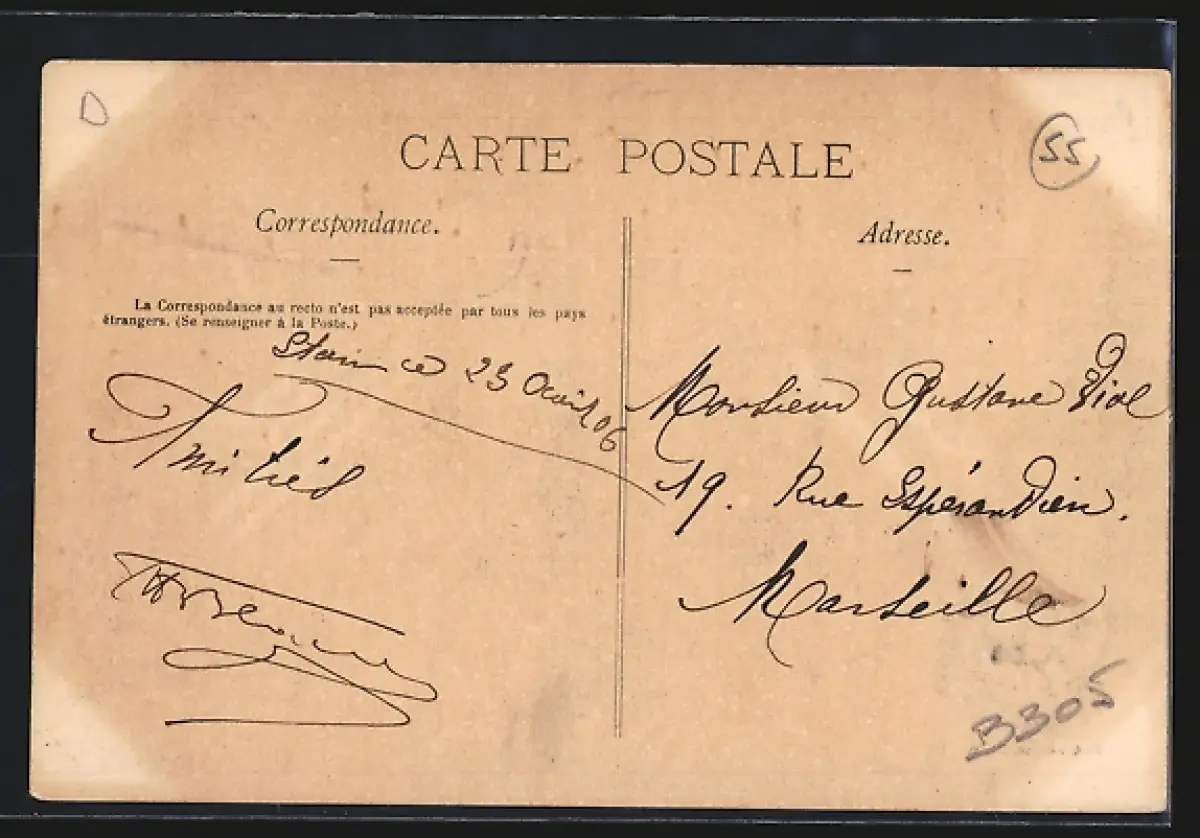 D
55
CARTE POSTALE
Correspondance.
Adresse.
La Correspondance au recto n'est pas acceptée par tous les pays
étrangers. (Se renseigner à la Poste.)
ce 23 06
Amitiés
Monsieur Gustave Viol
19. Rue Espérandieu.
Marseille
B305